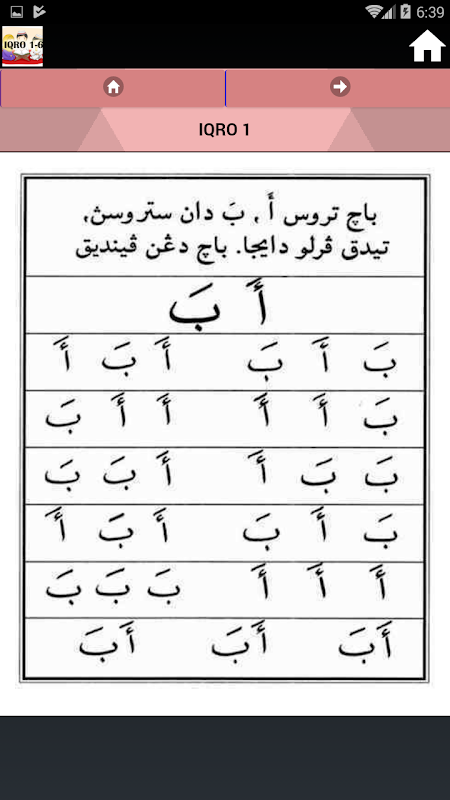 6:39
IQRO 1-6
IQRO 1
باچ تروس أَ , بَ دان ستروسڽ,
تيدق ڤرلو دايجا. باچ دڠن ڤينديق
أَ بَ
بَ أَ بَ أَ بَ أَ
بَ أَ أَ أَ أَ بَ
بَ بَ أَ أَ بَ بَ
بَ أَ بَ أَ بَ أَ
أَ أَ أَ بَ بَ بَ
أَبَ أَبَ أَبَ